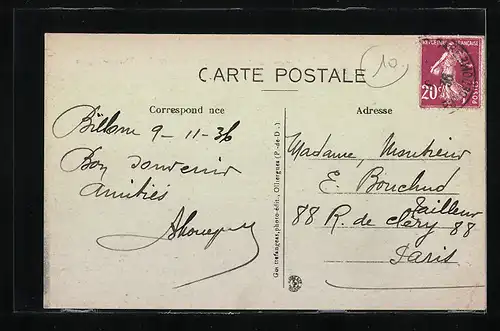 CARTE POSTALE
10
REPUBLIQUE FRANÇAISE
20c
POSTES
Correspond nce
Billom 9-11-36
Bon souvenir
amitiés
Adresse
Madame, Monsieur
E. Bouchud
Tailleur
88 R. de cléry 88
Paris
photo-édit., Olliergues (P.-de-D.)